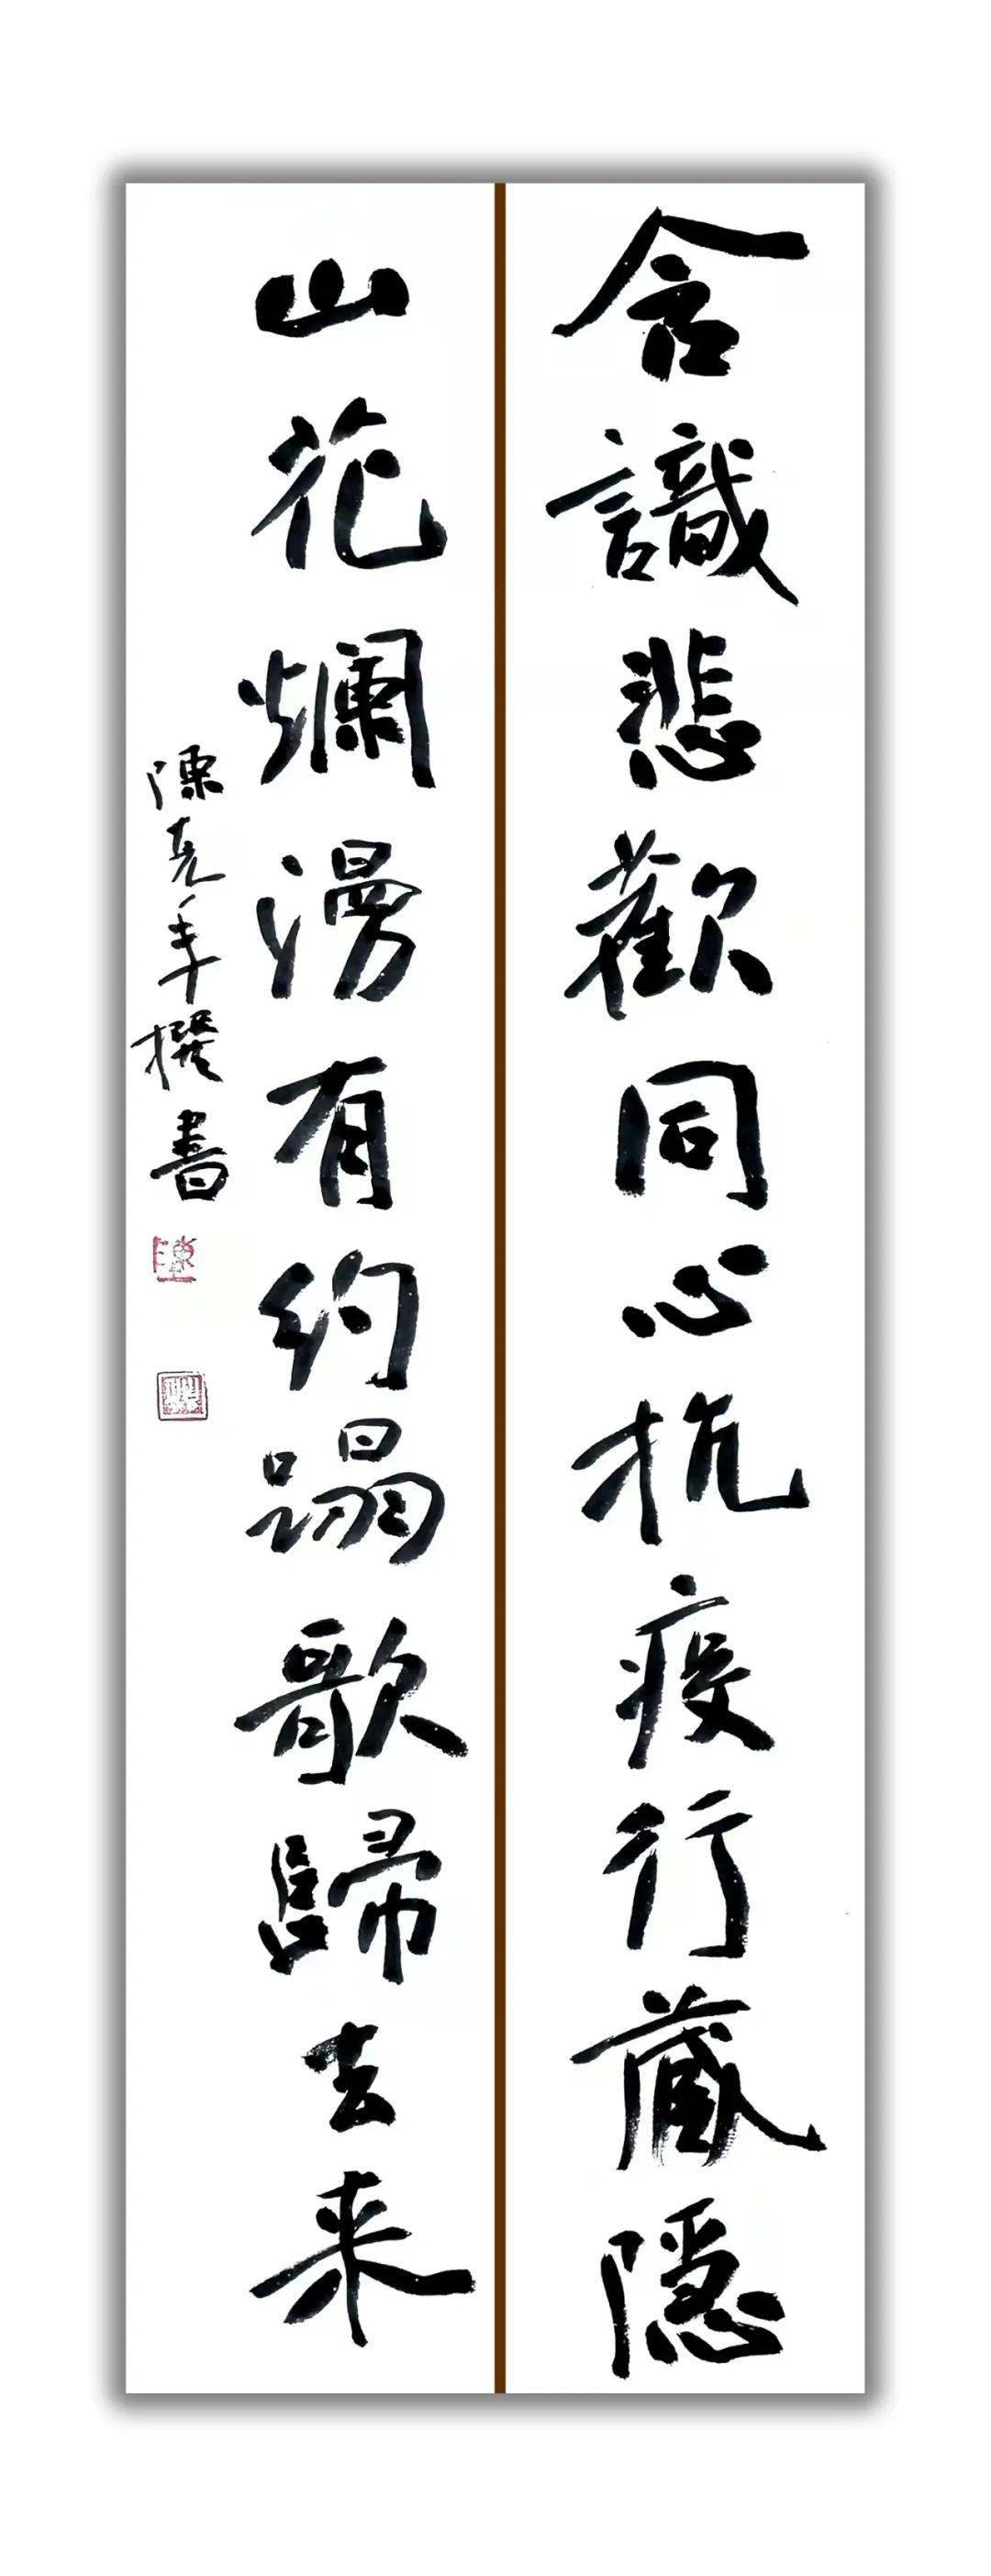 含識悲歡同心抗疫行藏隱
山花爛漫有約蹋歌歸去来
陳克年撰書